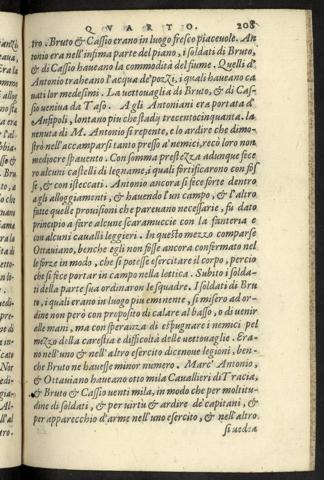 QVARTO. 208
tro. Bruto & Cassio erano in luogo fresco piaceuole. An
tonio era nell'infima parte del piano, i soldati di Bruto,
& di Cassio haueano la commodità del fiume. Quelli d'
Antonio traheano l'acqua de'pozzi, i quali haueano ca
nati lor medesimi. La uettouaglia di Bruto, & di Cas-
sio ueniua da Taso. A gli Antoniani era portata d'
Anfipoli, lontano piu che stadij trecentocinquanta. la
uenuta di M. Antonio sì repente, e lo ardire che dimo-
strò nell'accamparsi tanto presso a' nemici, recò loro non
mediocre spauento. Con somma prestezza adunque fece
ro alcuni castelli di legname, i quali fortificarono con fos
se, & con isteccati. Antonio ancora si fece forte dentro
agli alloggiamenti, & hauendo l'un campo, & l'altro
fatte quelle prouisioni che pareuano necessarie, fu dato
principio a fare alcune scaramuccie con la fanteria e
con alcuni caualli leggieri. In questo mezzo comparse
Ottauiano, benche egli non fosse ancora confermato nel
le forze in modo, che si potesse esercitare il corpo, percio
che si fece portar in campo nella lettica. Subito i solda-
ti della parte sua ordinaron le squadre. I soldati di Bru
to, i quali erano in luogo piu eminente, si misero ad or-
dine non però con proposito di calare al basso, o di uenir
alle mani, ma con speranza di espugnar i nemici pel
mezzo della carestia e difficoltà delle uettouaglie. Era-
no nell'uno & nell'altro esercito dicenoue legioni, ben-
che Bruto ne hauesse minor numero. Marc' Antonio,
& Ottauiano haueano otto mila Cauallieri di Tracia,
& Bruto & Cassio uenti mila, in modo che per moltitu-
dine di soldati, & per uirtù & ardire de' capitani, &
per apparecchio d'arme nell'uno esercito, & nell'altro
si uedea